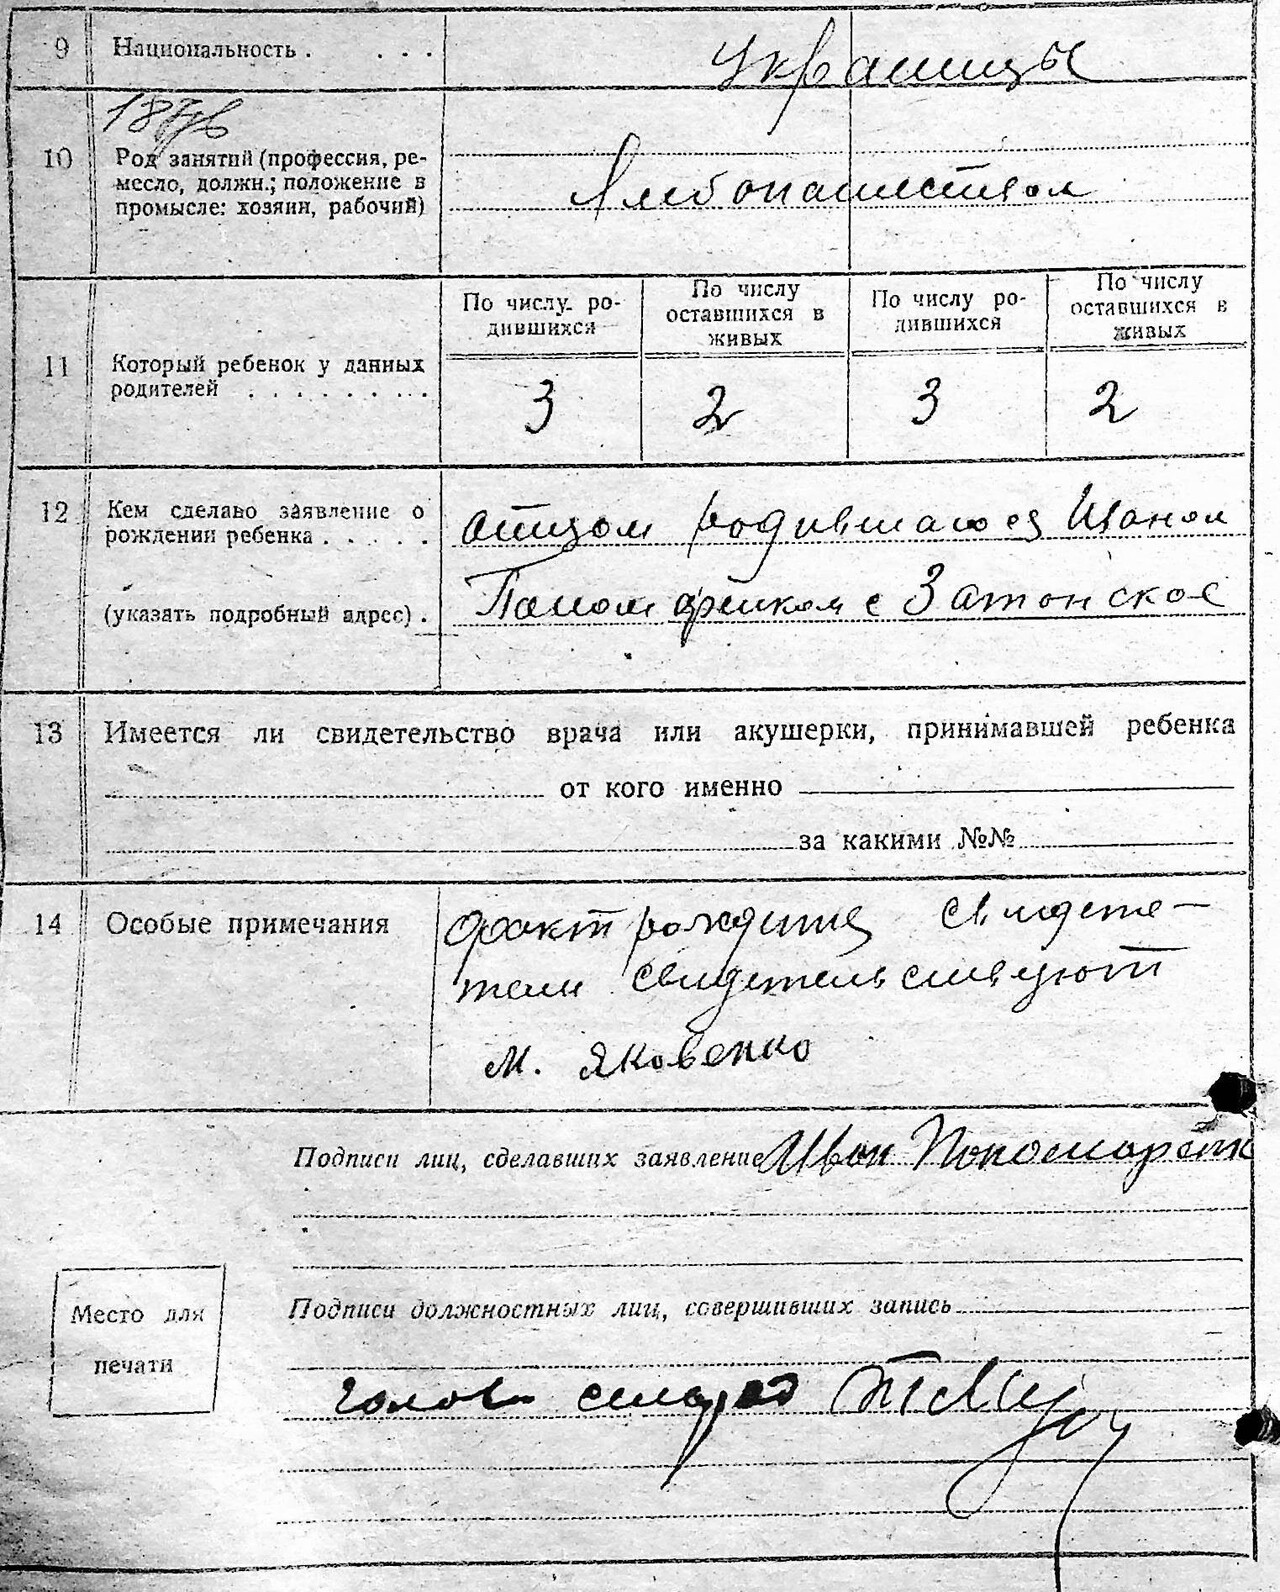 9 Национальность . . . . украинцы
10 Род занятий (профессия, ре-
месло, должн.; положение в
промысле: хозяин, рабочий)
Хлебопашество
По числу ро-
дившихся
По числу
оставшихся в
живых
По числу ро-
дившихся
По числу
оставшихся в
живых
11 Который ребенок у данных
родителей . . . . . . . . .
3 2 3 2
12 Кем сделано заявление о
рождении ребенка . . . . .
(указать подробный адрес) .
отцом родившагося Иваном
с Затонское
13 Имеется ли свидетельство врача или акушерки, принимавшей ребенка
от кого именно
за какими №№
14 Особые примечания
факт рождения свидете-
тели свидетельствуют
М. Яковенко
Подписи лиц, сделавших заявление Иван Пономаренк
Подписи должностных лиц, совершивших запись
Место для
печати
голова сильрад